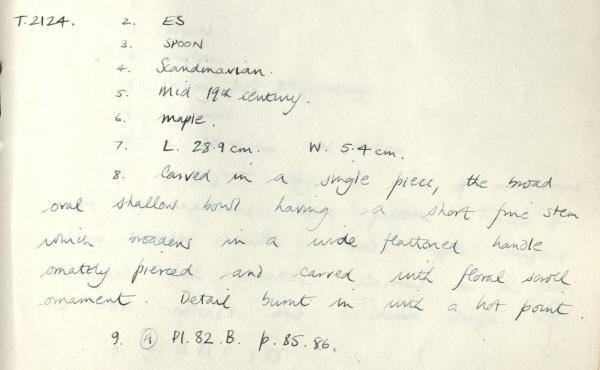 T.2124. 2. ES
3. SPOON
4. Scandinavian.
5. Mid 19th century.
6. Maple.
7. L. 28.9cm. W. 5.4cm.
8. Carved in a single piece, the broad
oval shallow bowl having a short fine stem
which broadens in a wide flattened handle
ornately pierced and carved with floral scroll
ornament. Detail burnt in with a hot point.
9. (A) Pl. 82. B. p. 85. 86.